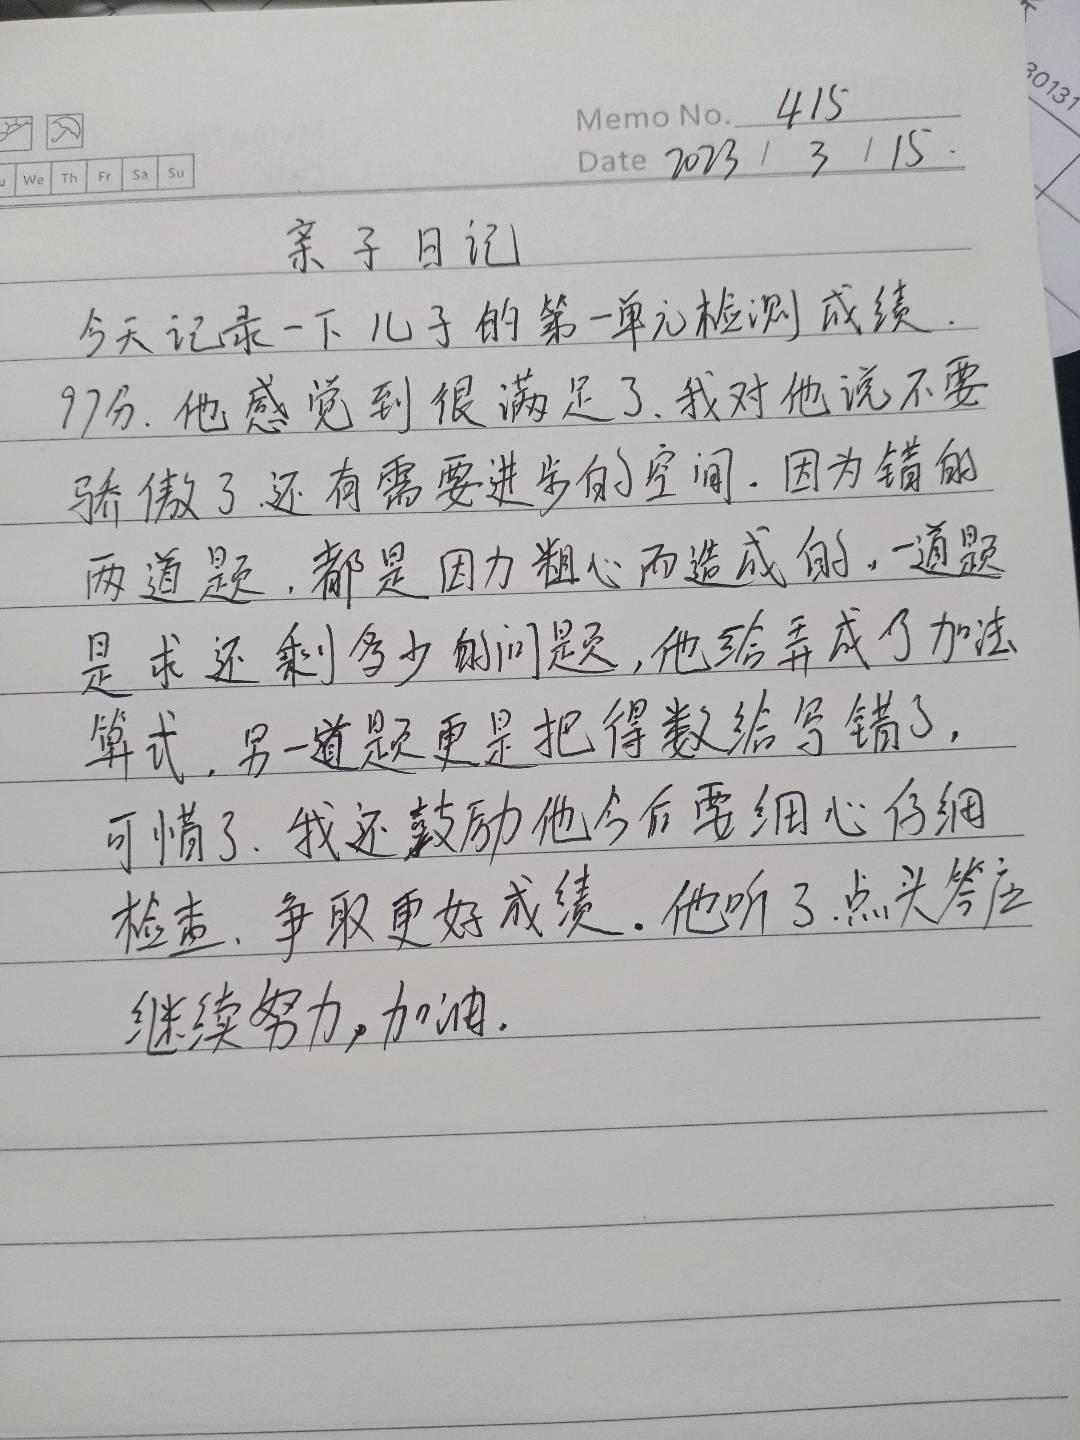 Memo No. 415
Date 2023 / 3 / 15.
We Th Fr Sa Su
30131
亲子日记
今天记录一下儿子的第一单元检测成绩.
97分.他感觉到很满足了.我对他说不要
骄傲了.还有需要进步的空间.因为错的
两道题.都是因为粗心而造成的,一道题
是求还剩多少的问题,他给弄成了加法
算式.另一道题更是把得数给写错了,
可惜了.我还鼓励他今后要细心仔细
检查、争取更好成绩.他听了.点头答应
继续努力,加油.